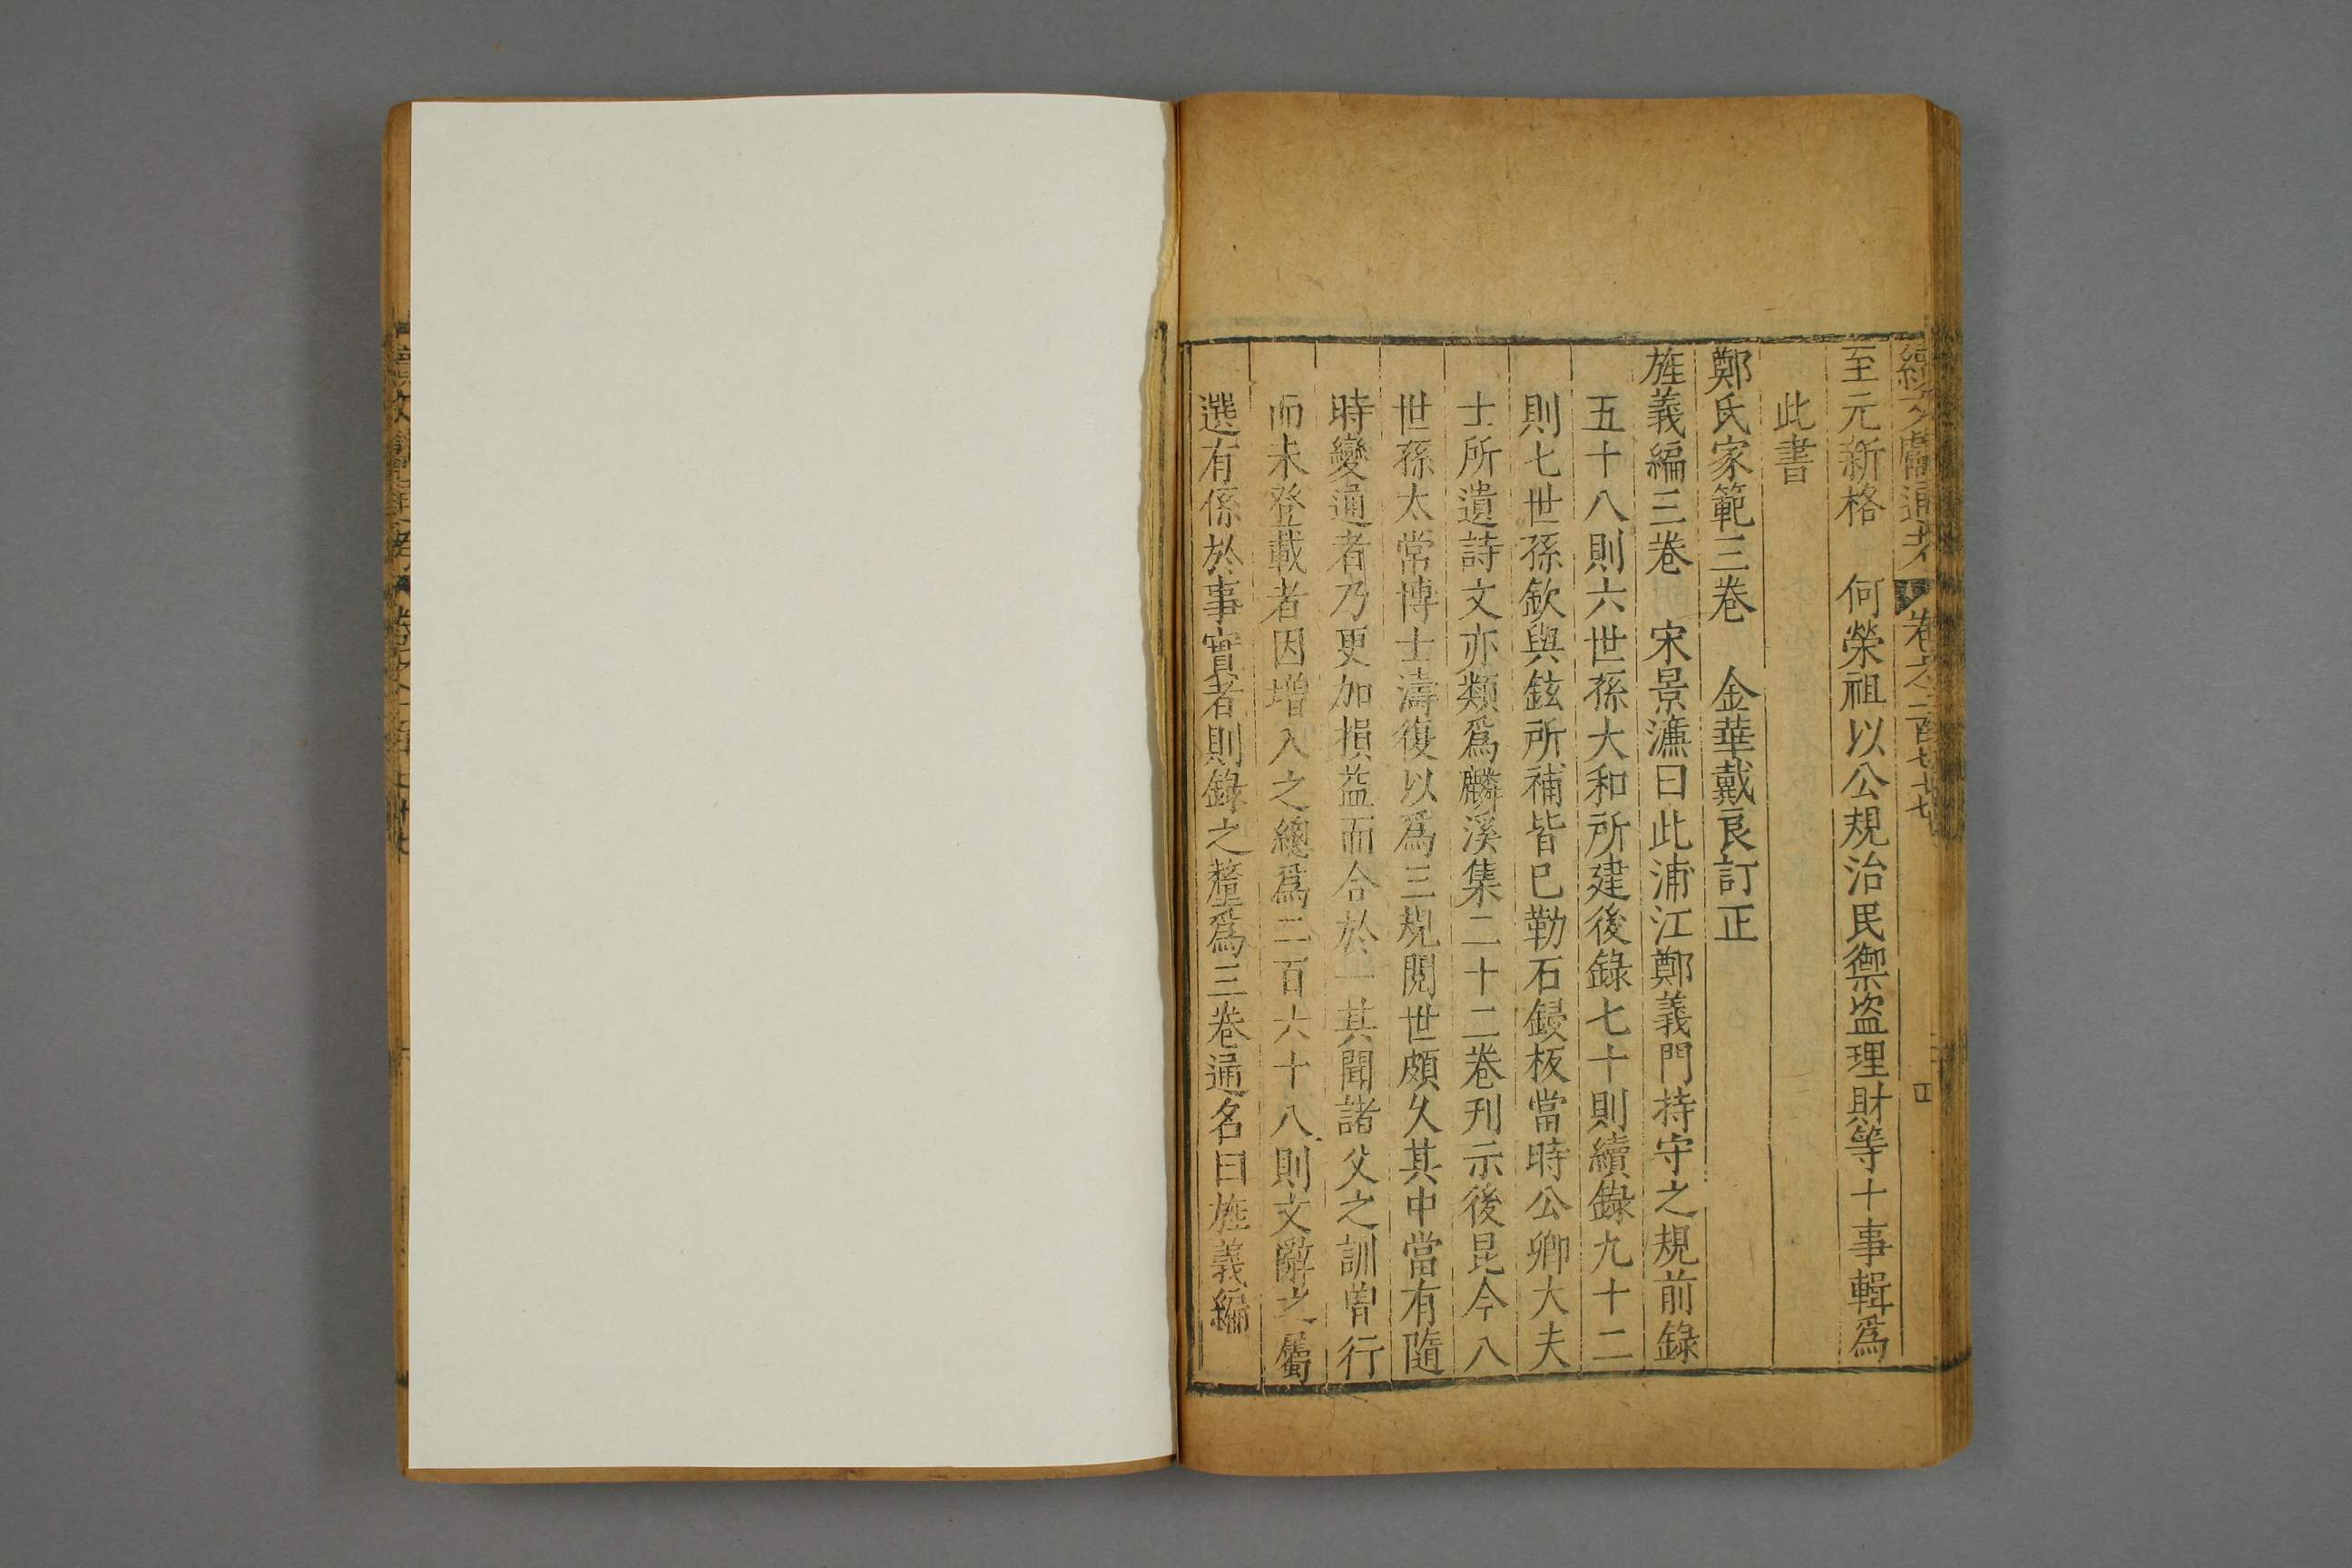 續文獻通考 卷之一百七十七
至元新格 何榮祖以公規治民禦盜理財等十事輯爲
此書
鄭氏家範三卷 金華戴良訂正
旌義編三卷 宋景濂曰此浦江鄭義門持守之規前錄
五十八則六世孫大和所建後錄七十則續錄九十二
則七世孫欽與鉉所補皆已勒石鋟板當時公卿大夫
士所遺詩文亦類爲麟溪集二十二卷刋示後昆今八
世孫太常博士濤復以爲三規閱世頗久其中當有隨
時變通者乃更加損益而合於一其聞諸父之訓曽行
而未登載者因增入之總爲二百六十八則文辭之屬
選有係於事實者則錄之釐爲三卷通名曰旌義編